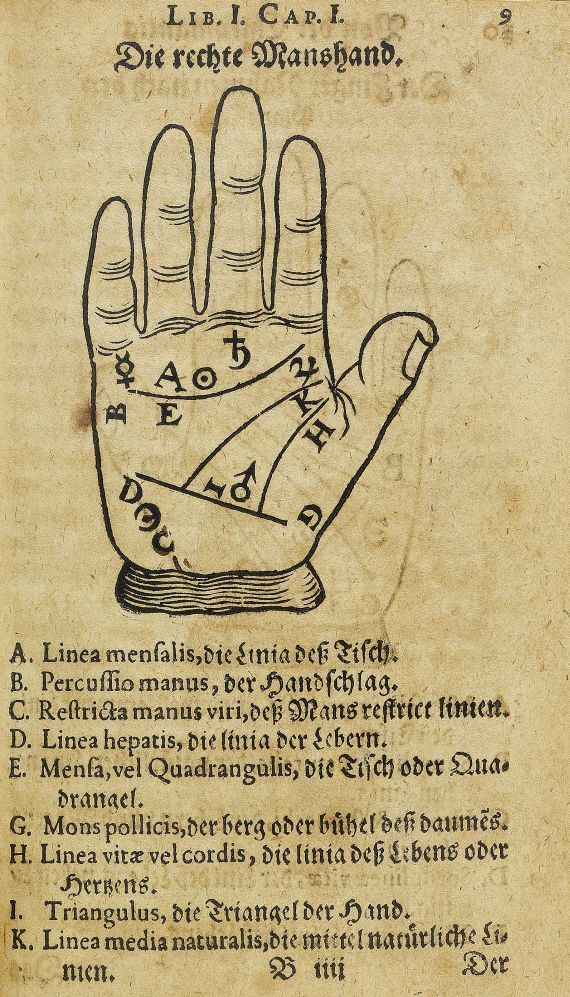 LIB. I. CAP. I. 9
Die rechte Manshand.
♄
☿ A ☉ ♃
B E K
H
D I ♂
G
C
A. Linea menſalis, die Linia deß Tiſch.
B. Percuſſio manus, der Handſchlag.
C. Reſtricta manus viri, deß Mans reſtrict linien.
D. Linea hepatis, die linia der Lebern.
E. Menſa, vel Quadrangulis, die Tiſch oder Qua-
drangel.
G. Mons pollicis, der berg oder bühel deß daumēs.
H. Linea vitæ vel cordis, die linia deß Lebens oder
Hertzens.
I. Triangulus, die Triangel der Hand.
K. Linea media naturalis, die mittel natürliche Li-
nien. B iiij Der